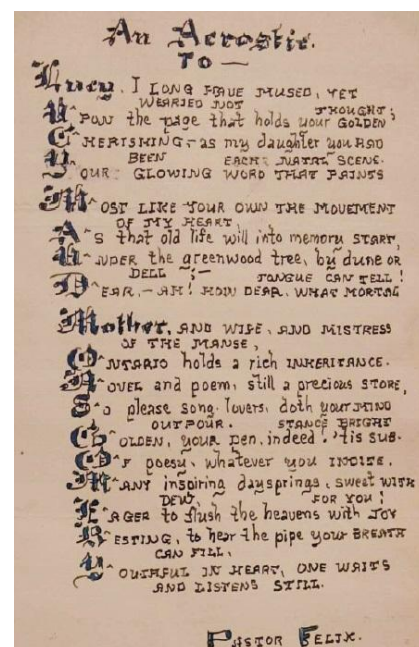 An Acrostic.
TO —
Lucy, I LONG HAVE MUSED, YET
WEARIED NOT THOUGHT;
UPON the page that holds your GOLDEN
CHERISHING – as my daughter you HAD
BEEN EACH NATAL SCENE.
YOUR GLOWING WORD THAT PAINTS
MOST LIKE YOUR OWN THE MOVEMENT
OF MY HEART,
AS that old life will into memory START,
UNDER the greenwood tree, by dune OR
DELL ;– TONGUE CAN TELL !
DEAR, – AH ! HOW DEAR, WHAT MORTAL
Mother, AND WIFE, AND MISTRESS
OF THE MANSE,
ONTARIO holds a rich INHERITANCE.
NOVEL and poem, still a precious STORE,
TO please song-lovers, doth your MIND
OUTPOUR. STANCE BRIGHT
GOLDEN, your pen, indeed ! 'tis SUB-
OF poesy, whatever you INDITE.
MANY inspiring daysprings, sweet WITH
DEW, FOR YOU ;
EAGER to flush the heavens with JOY
RESTING, to hear the pipe your BREATH
CAN FILL,
YOUTHFUL IN HEART, ONE WAITS
AND LISTENS STILL.
PASTOR FELIX.